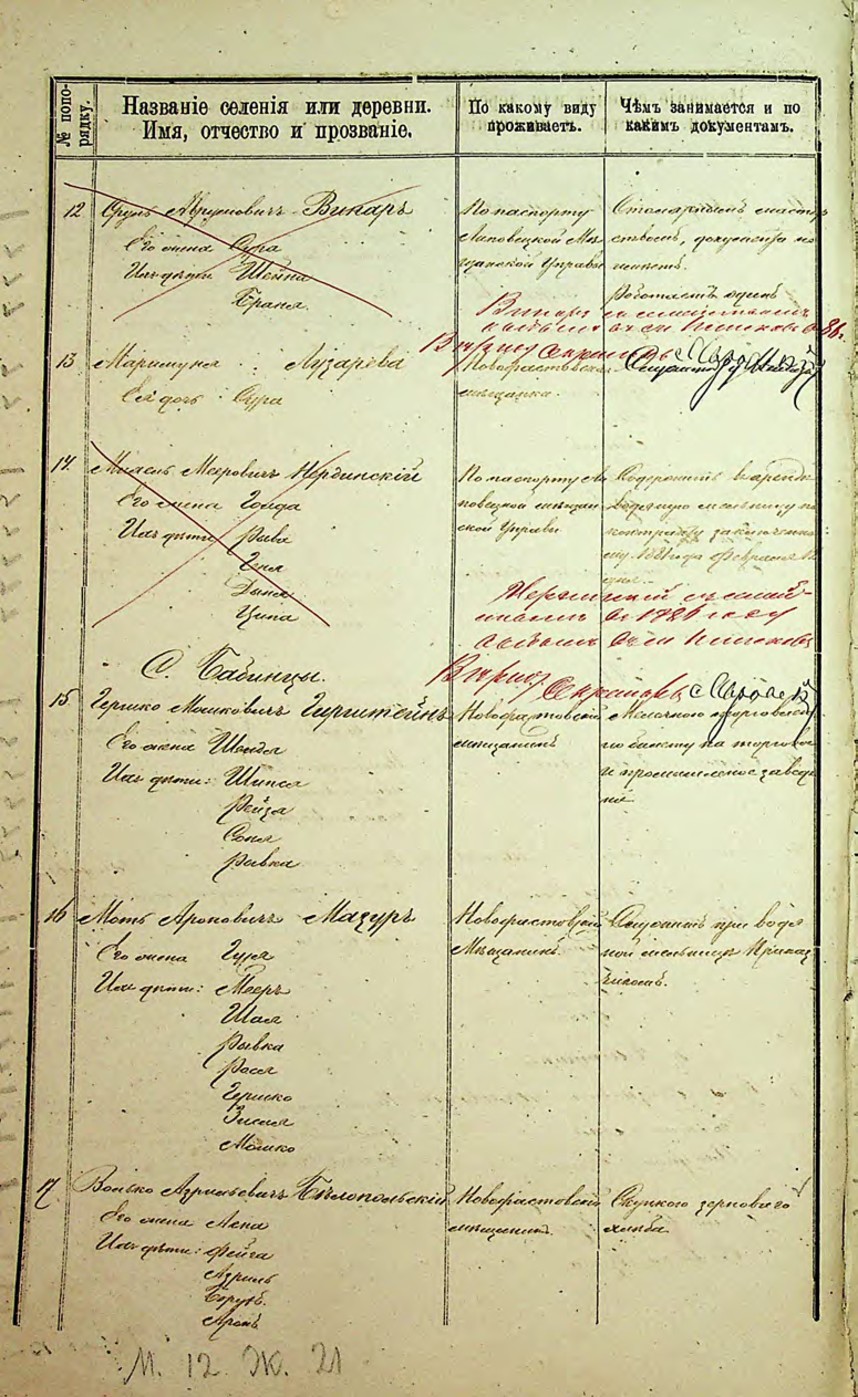 № попо-
рядку.
Названіе селенія или деревни.
Имя, отчество и прозваніе.
По какому виду
проживаетъ.
Чѣмъ занимается и по
какимъ документамъ.
12 Сруль Абрумовичъ Викаръ
Его жена Сура
Ихъ дѣти Шейна
Браня
По паспорту
Липовецкой Мѣ
щанской Управы
Столярнымъ мастер
ствомъ, документа не
имѣетъ.
Работаетъ одинъ
13 Маримуня Лузарева
Ея дочь Сура
Новофастовская
мѣщанка.
14. Мееровичъ Нердинскій
Его жена Голда
Ихъ дѣти Рива
Геня
Дыня
Ципа
По паспорту Ли
повецкой мѣщан
ской Управы
Содержитъ въ аренд
водяную мельницу по
контракту заключенно
му 1881 года Февраля 12
дня
въ 1886 году
С. Бабинцы.
15 Гершко Мошковичъ Гирштейнъ
Его жена Шейдл
Ихъ дѣти: Шипся
Рейза
Соня
Рывка
Новофастовскій
мѣщанинъ
Мелочною торговлею
по билету на торгово
и промышленное завед
нія
16 Моть Ароновичъ Мазуръ
Его жена Гуля
Ихъ дѣти: Мееръ
Шая
Рывка
Рося
Гершко
Зисля
Мошко
Новофастовскій
Мѣщанинъ.
Служитъ при водя
ной мельницѣ Приказ
чикомъ.
17. Волько Азрильевичъ Бѣлопольскій
Его жена Лена
Ихъ дѣти: Фейга
Азриль
Борухъ.
Аронъ
Новофастовскій
мѣщанинъ.
Скупкою зернового
хлѣба
М. 12 Ж. 21